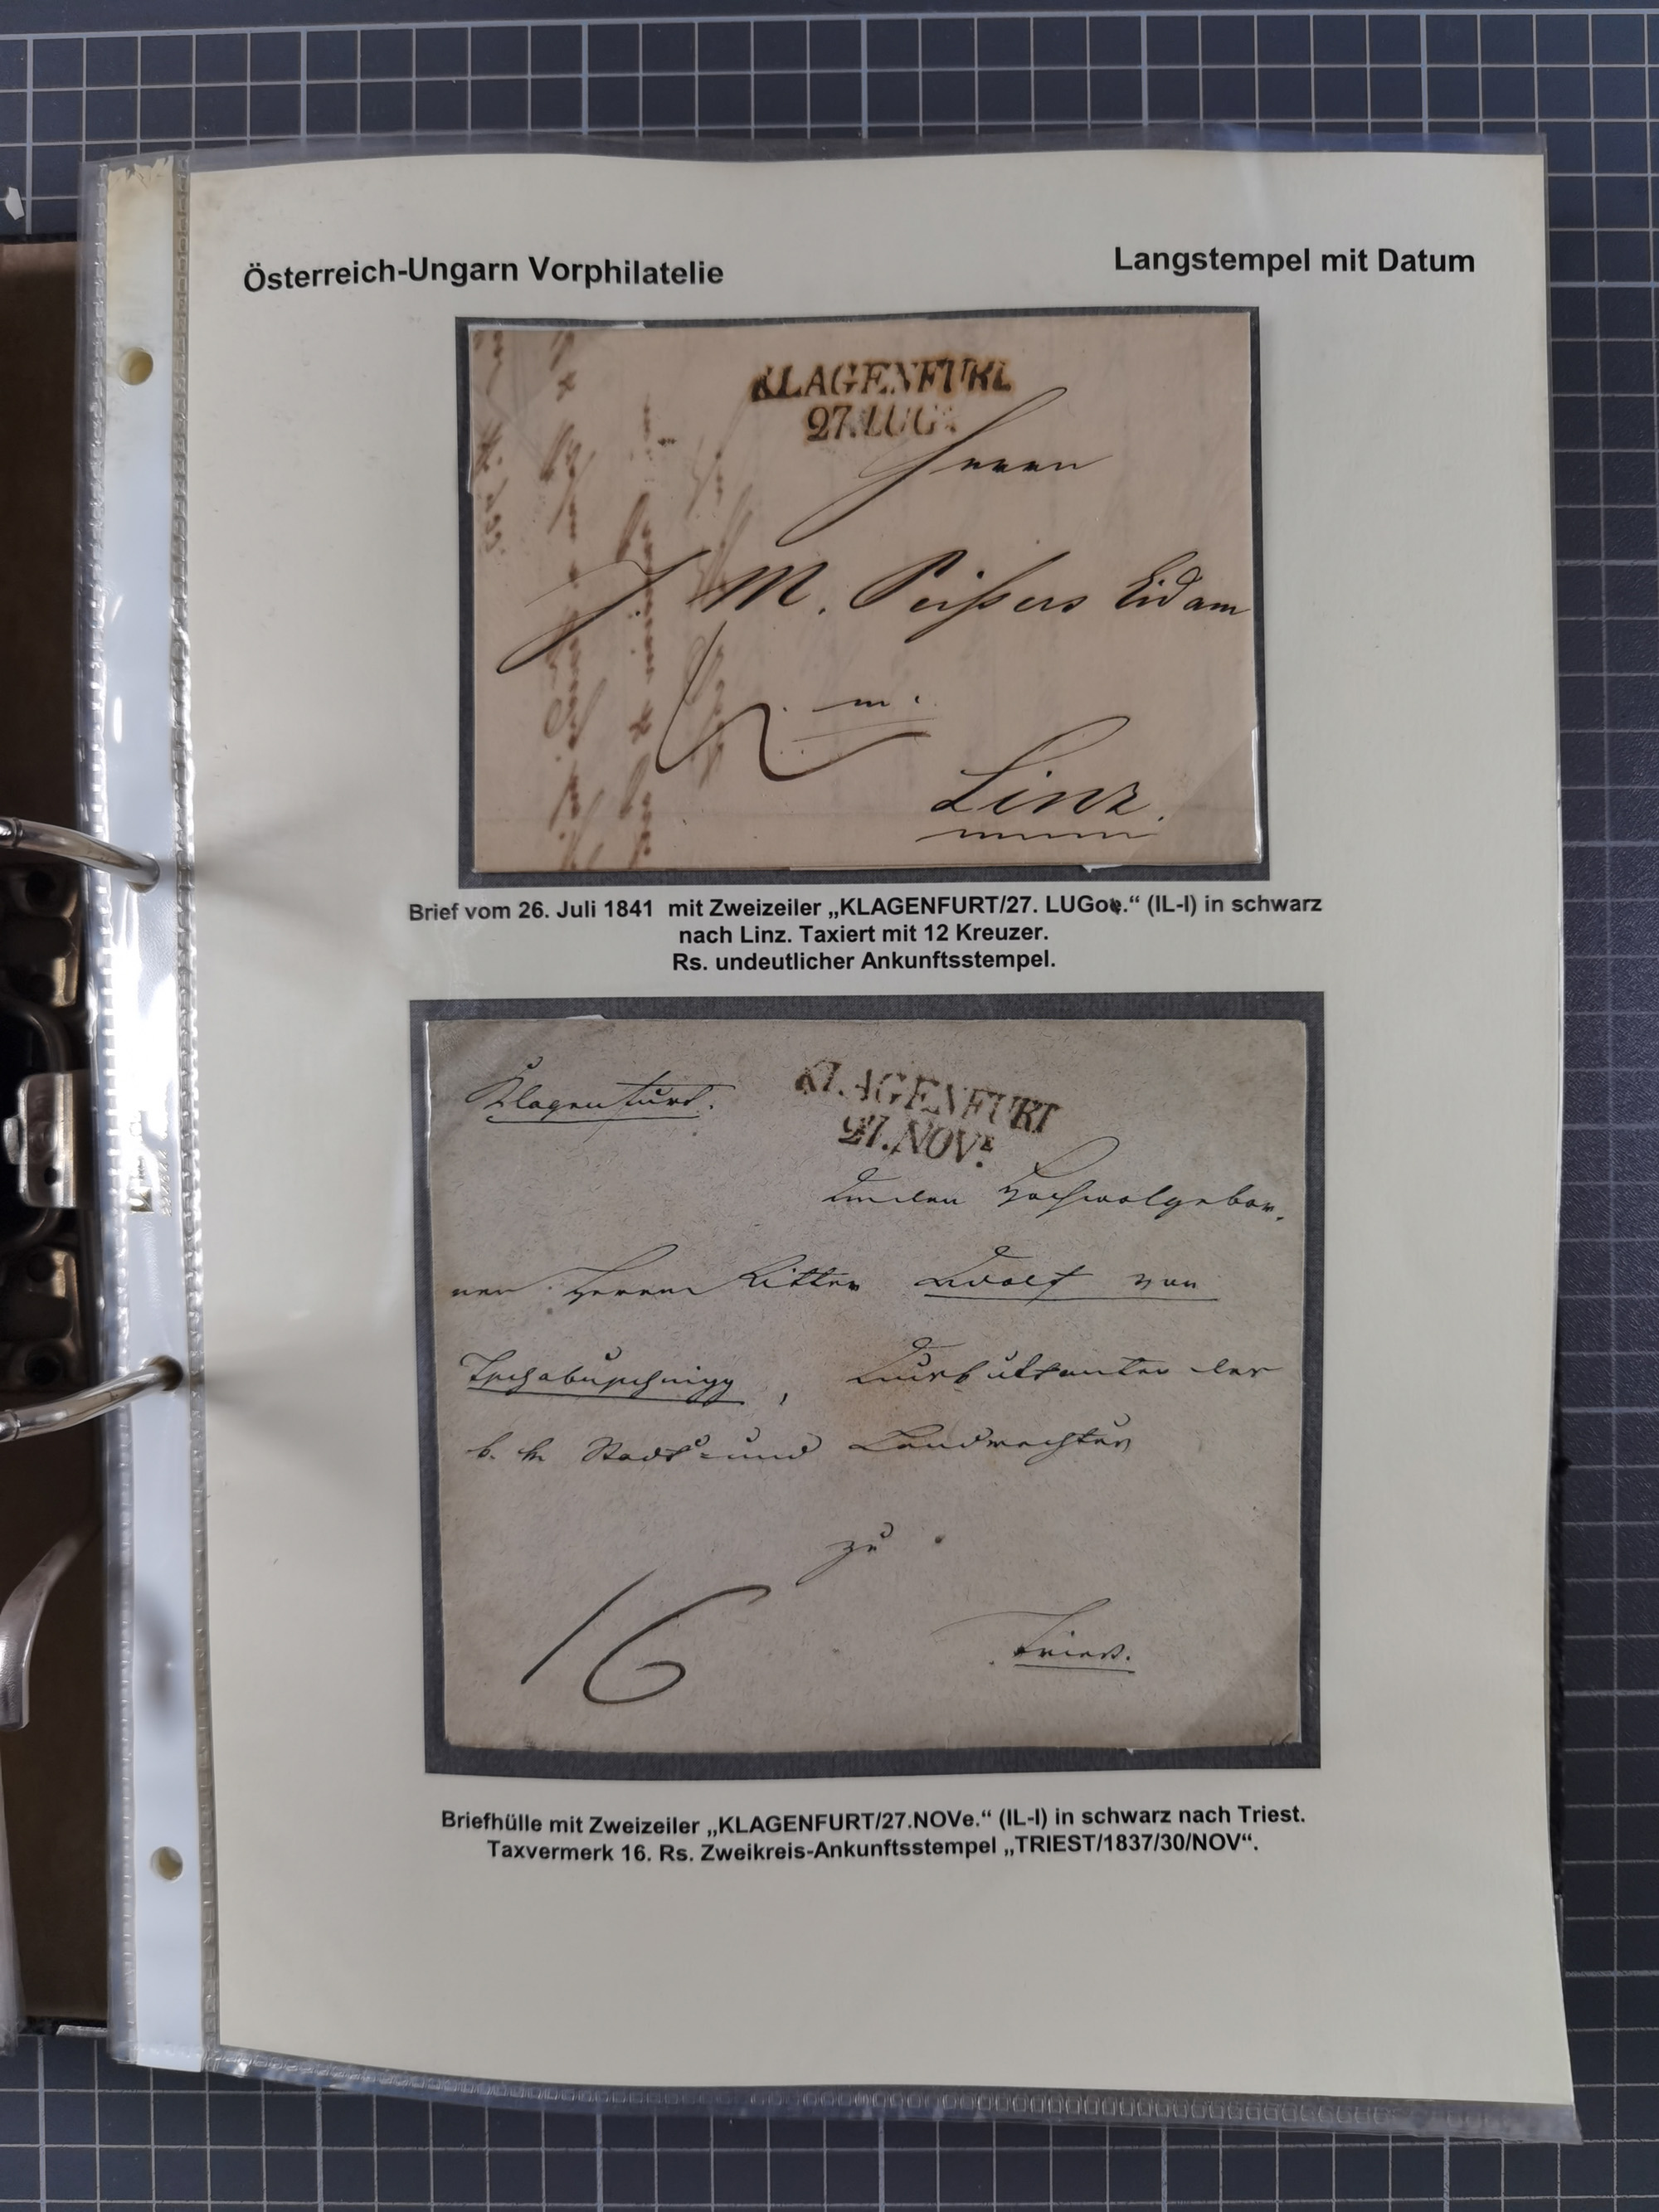 Österreich-Ungarn Vorphilatelie
Langstempel mit Datum
KLAGENFURT
27.LUG
Herrn
J M. Peißers Eidam
12
m.
Linz.
Brief vom 26. Juli 1841 mit Zweizeiler „KLAGENFURT/27. LUGoe.“ (IL-I) in schwarz
nach Linz. Taxiert mit 12 Kreuzer.
Rs. undeutlicher Ankunftsstempel.
Klagenfurt.
KLAGENFURT
27.NOVE.
Hochwolgebor.
nen Herrn Ritter Adolf von
Tschabuschnigg, der
k. k. Stadt- und Landrechten
zu
16
Triest.
Briefhülle mit Zweizeiler „KLAGENFURT/27.NOVe.“ (IL-I) in schwarz nach Triest.
Taxvermerk 16. Rs. Zweikreis-Ankunftsstempel „TRIEST/1837/30/NOV“.